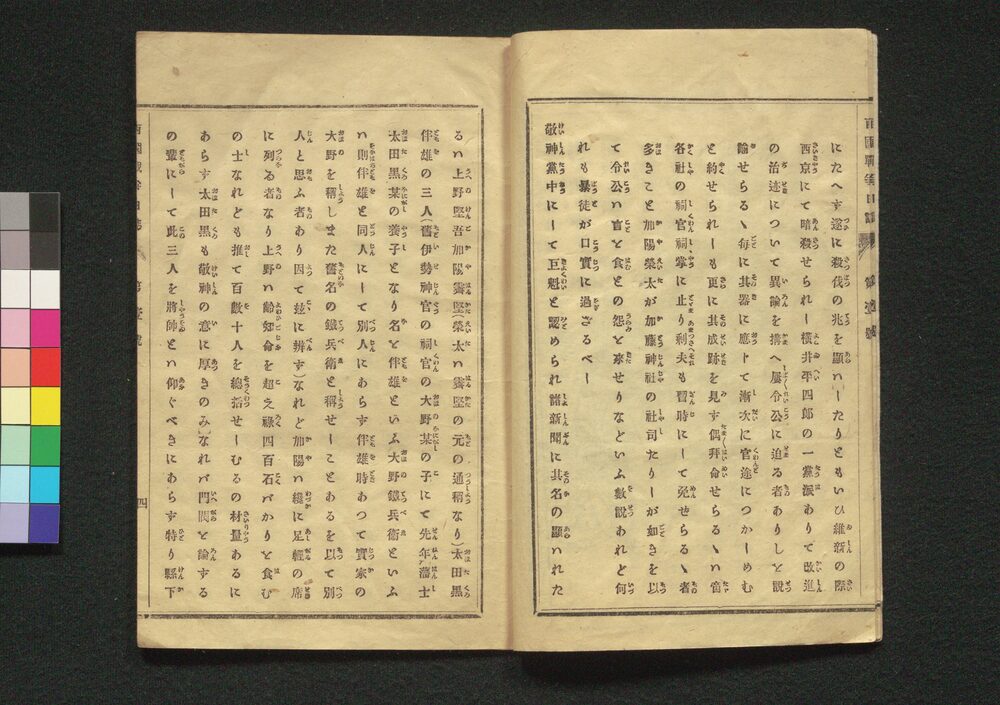 にたへす遂に殺伐の兆を顯ハーたりともいひ維新の際
西京にて暗殺せられー橫井平四郎の一黨派ありて改進
の治迹について異論を搆へ屢令公に迫る者ありしと說
諭せらるゝ每に其器に應トて漸次に官途につかーめむ
と約せられーも更に其成跡を見す偶拜命せらるゝハ
各社の祠官祠掌に止り剩夫も暫時にーて免せらるゝ者
多きこと加陽榮太が加藤神社の社司たりーが如きを以
て令公ハ言を食との怨を來せりなどいふ數說あれど何
れも暴徒が口實に過ざるべー
敬神黨中にーて巨魁と認められ諸新聞に其名の顯ハれた
るハ上野堅吾加陽霽堅(榮太ハ霽堅の元の通稱なり)太田黑
伴雄の三人(舊伊勢神官の祠官の大野某の子にて先年藩士
太田黑某の養子となり名を伴雄といふ大野鐵兵衛といふ
ハ則伴雄と同人にーて別人にあらす伴雄時あつて實家の
大野を稱しまた舊名の鐵兵衛と稱せーことあるを以て別
人と思ふ者あり因て玆に辨す)なれど加陽ハ纔に足輕の席
に列る者なり上野ハ齡知命を超之祿四百石バかりを食む
の士なれども推て百數十人を總括せーむるの材量あるに
あらす太田黑も敬神の意に厚きのみ」なれバ門閥を論する
の輩にーて此三人を將帥とハ仰ぐべきにあらす特り縣下
四